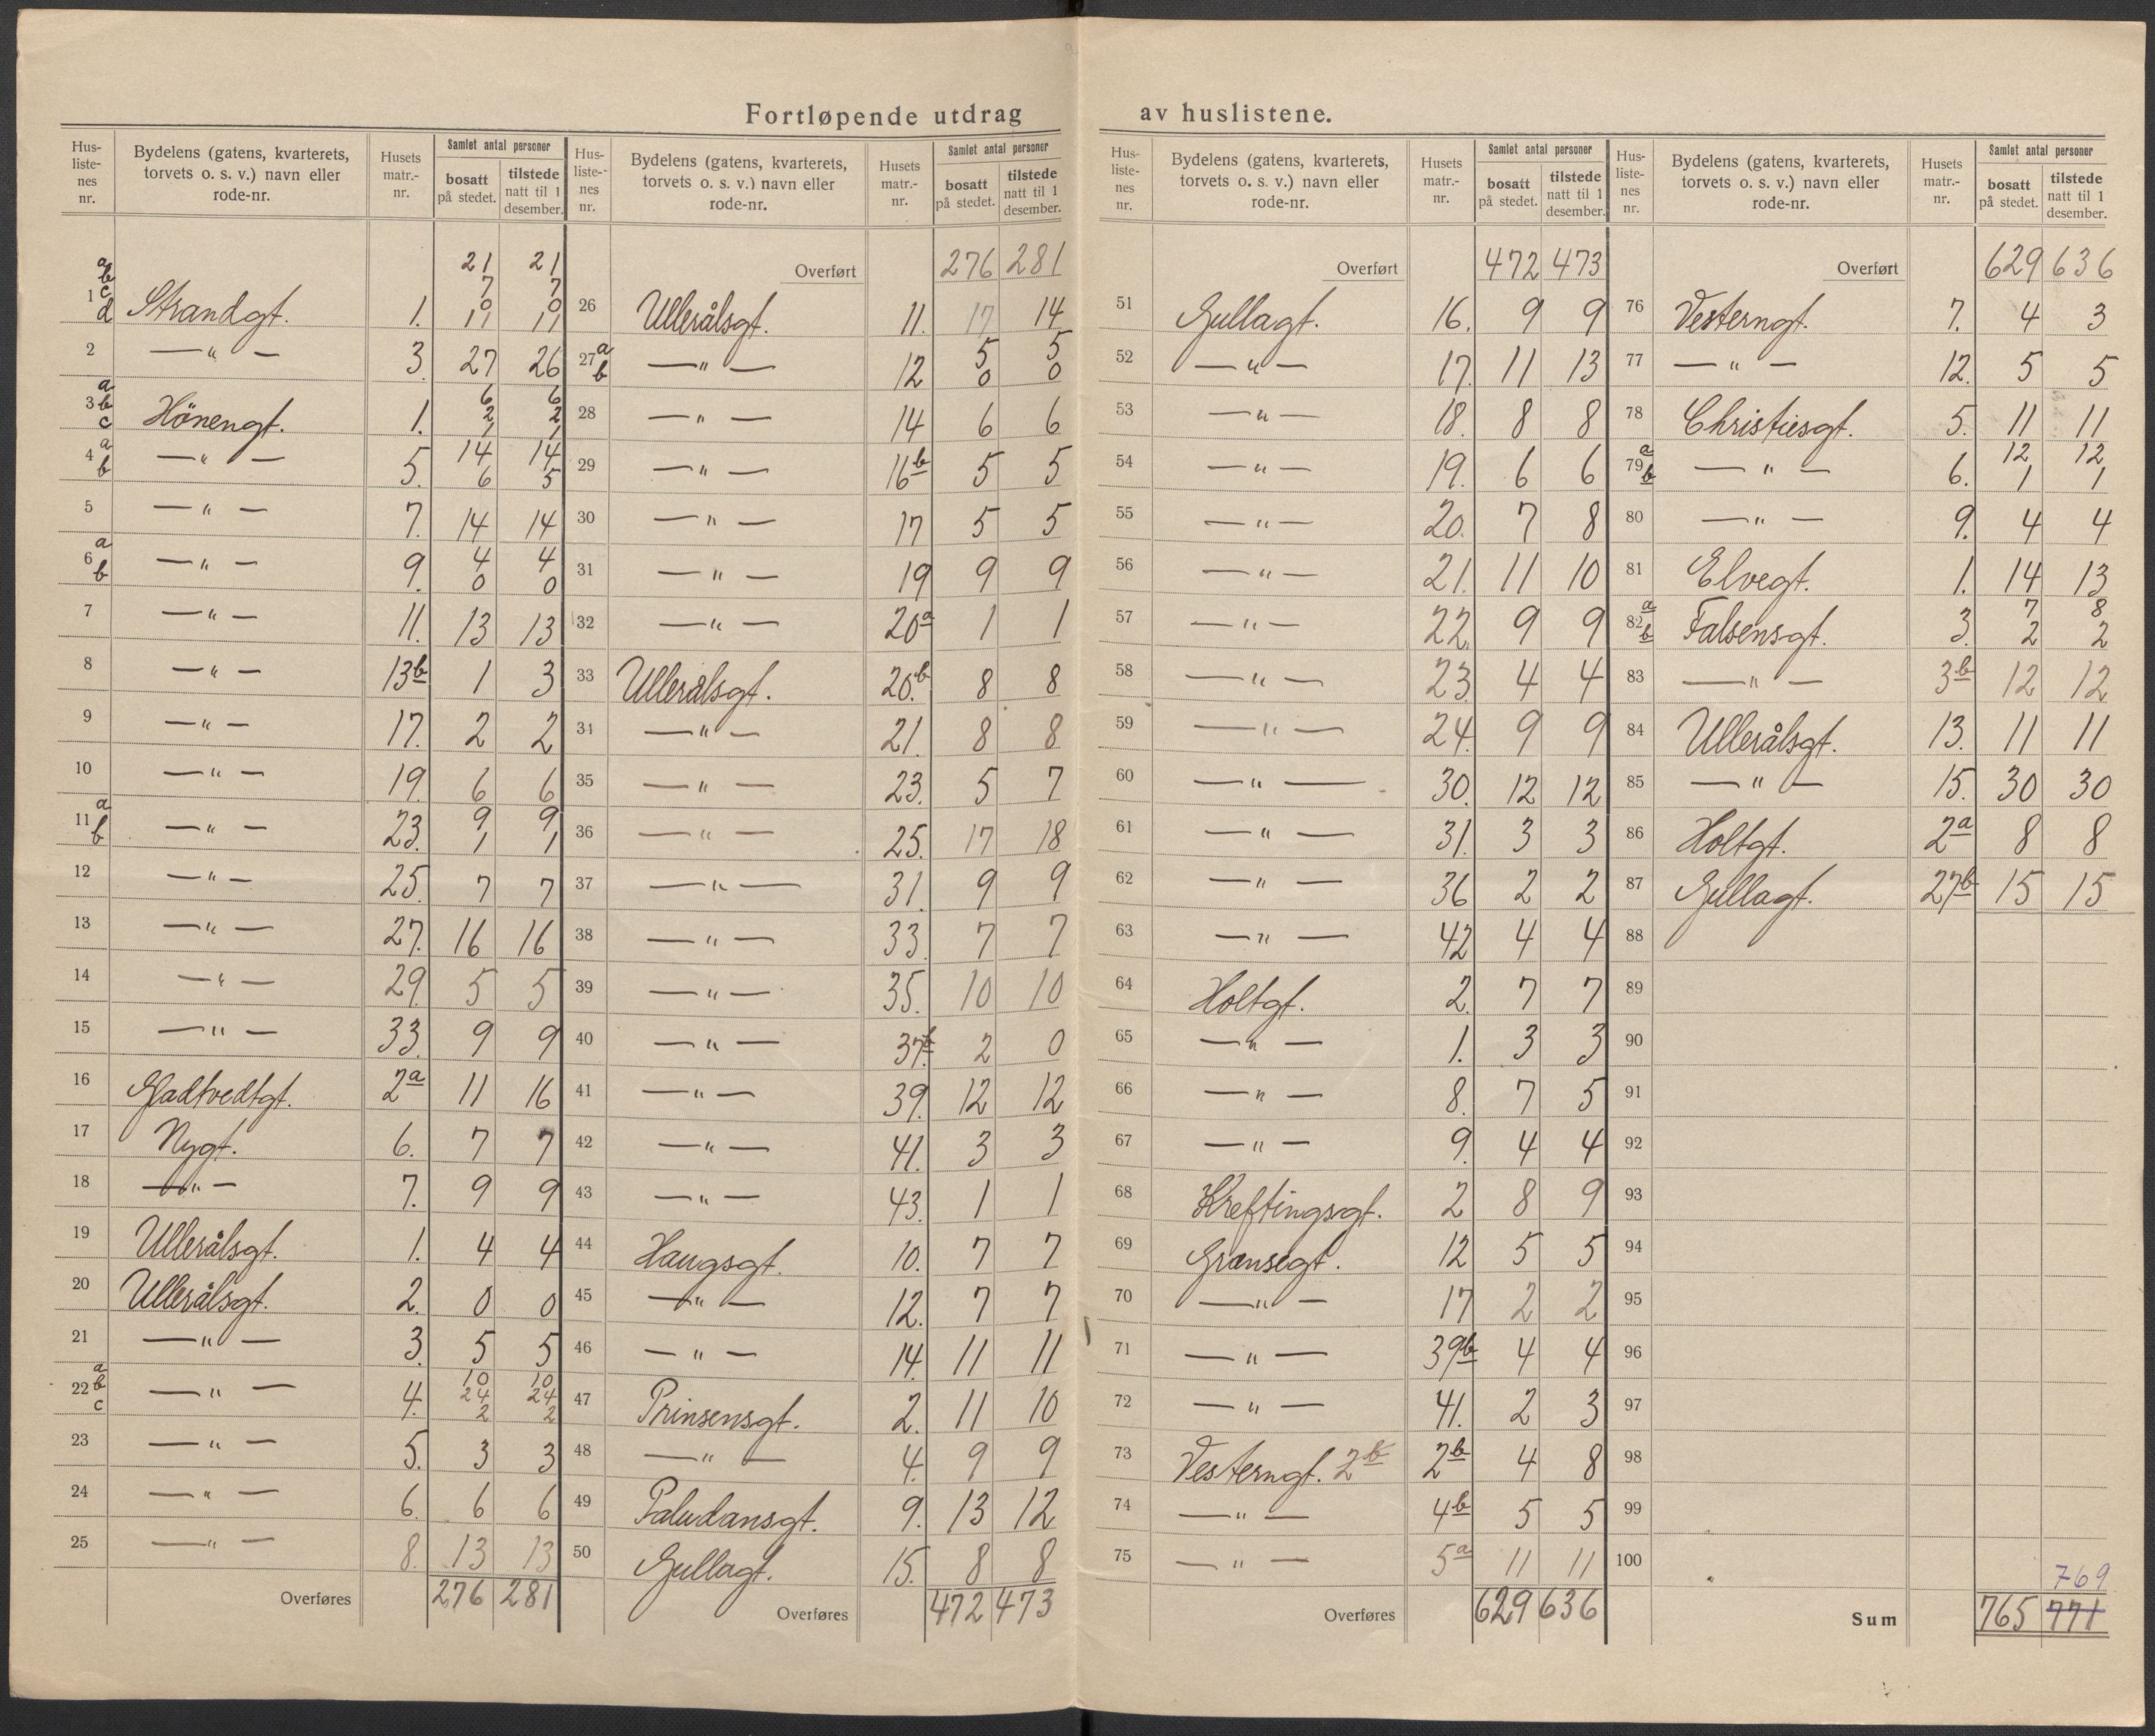 Fortløpende utdrag av huslistene.
Hus-listenes nr. | Bydelens (gatens, kvarterets, torvets o. s. v.) navn eller rode-nr. | Husets matr.-nr. | Samlet antal personer | bosatt på stedet. | tilstede natt til 1 desember.
1 a b c d Strandgt. 1. 21 7 0 11 21 7 0 11
2 —"— 3. 27 26
3 a b c Hönengt. 1. 6 2 1 6 2 1
4 a b —"— 5. 14 6 14 5
5 —"— 7. 14 14
6 a b —"— 9. 4 0 4 0
7 —"— 11. 13 13
8 —"— 13b 1 3
9 —"— 17. 2 2
10 —"— 19. 6 6
11 a b —"— 23. 9 1 9 1
12 —"— 25. 7 7
13 —"— 27. 16 16
14 —"— 29. 5 5
15 —"— 33. 9 9
16 Gladtvedtgt. 2a 11 16
17 Nygt. 6. 7 7
18 —"— 7. 9 9
19 Ullerålsgt. 1. 4 4
20 Ullerålsgt. 2. 0 0
21 —"— 3. 5 5
22 a b c —"— 4. 10 24 2 10 24 2
23 —"— 5. 3 3
24 —"— 6. 6 6
25 —"— 8. 13 13
Overføres 276 281
Hus-liste-nes nr. | Bydelens (gatens, kvarterets, torvets o. s. v.) navn eller rode-nr. | Husets matr.-nr. | Samlet antal personer | bosatt på stedet. | tilstede natt til 1 desember.
Overført 276 281
26 Ullerålsgt. 11. 17 14
27 a b —"— 12 5 0 5 0
28 —"— 14 6 6
29 —"— 16b 5 5
30 —"— 17 5 5
31 —"— 19 9 9
32 —"— 20a 1 1
33 Ullerålsgt. 20.b 8 8
34 —"— 21. 8 8
35 —"— 23. 5 7
36 —"— 25. 17 18
37 —"— 31. 9 9
38 —"— 33. 7 7
39 —"— 35. 10 10
40 —"— 37b 2 0
41 —"— 39. 12 12
42 —"— 41. 3 3
43 —"— 43. 1 1
44 Haugsgt. 10. 7 7
45 —"— 12. 7 7
46 —"— 14. 11 11
47 Prinsensgt. 2. 11 10
48 —"— 4. 9 9
49 Paludansgt. 9. 13 12
50 Gullagt. 15. 8 8
Overføres 472 473
Hus-liste-nes nr. | Bydelens (gatens, kvarterets, torvets o. s. v.) navn eller rode-nr. | Husets matr.-nr. | Samlet antal personer | bosatt på stedet. | tilstede natt til 1 desember.
Overført 472 473
51 Gullagt. 16. 9 9
52 —"— 17. 11 13
53 —"— 18. 8 8
54 —"— 19. 6 6
55 —"— 20. 7 8
56 —"— 21. 11 10
57 —"— 22. 9 9
58 —"— 23 4 4
59 —"— 24. 9 9
60 —"— 30. 12 12
61 —"— 31. 3 3
62 —"— 36 2 2
63 —"— 42 4 4
64 Holtgt. 2. 7 7
65 —"— 1. 3 3
66 —"— 8. 7 5
67 —"— 9. 4 4
68 Kreftingsgt. 2 8 9
69 Grænsegt. 12 5 5
70 —"— 17 2 2
71 —"— 39b 4 4
72 —"— 41. 2 3
73 Vesterngt. 2b 2b 4 8
74 —"— 4b 5 5
75 —"— 5a 11 11
Overføres 629 636
Hus-liste-nes nr. | Bydelens (gatens, kvarterets, torvets o. s. v.) navn eller rode-nr. | Husets matr.-nr. | Samlet antal personer | bosatt på stedet. | tilstede natt til 1 desember.
Overført 629 636
76 Vesterngt. 7. 4 3
77 —"— 12. 5 5
78 Christiesgt. 5. 11 11
79 a b —"— 6. 12 1 12 1
80 —"— 9. 4 4
81 Elvegt. 1. 14 13
82 a b Falsensgt. 3. 7 2 8 2
83 —"— 3b 12 12
84 Ullerålsgt. 13. 11 11
85 —"— 15. 30 30
86 Holtgt. 2a 8 8
87 Gullagt. 27b 15 15
88
89
90
91
92
93
94
95
96
97
98
99
100
769
Sum 765 771